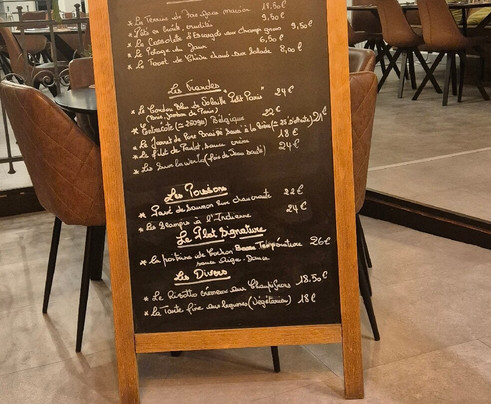 * La Terrine de Foie gras maison 18,50€
* Pâté en croûte, crudités 9,50€
* La Cassolette d'Escargots aux champignons 9,50€
* Le Potage du Jour 6,50€
* Le Toast de Chèvre chaud sur Salade 8,00€
Les Viandes
* Le Cordon Bleu de Volaille "Petit Paris" 24€
(Brie, Jambon de Paris)
* Entrecôte (= 250gr) Belgique 22€
* Le Jarret de Porc Braisé sauce à la Bière (= 25 minutes) 21€
* Le Filet de Poulet, sauce crème 18€
* Les (foie de Veau sauté) 24€
Les Poissons
* Pavé de saumon sur choucroute 22€
* Les Scampis à l'Indienne 24€
Le Plat Signature
* La poitrine de Cochon Basse Température 26€
sauce Aigre-Douce
Les Divers
* Le Risotto crémeux aux Champignons 18.50€
* La Tarte fine aux légumes (Végétarien) 18€